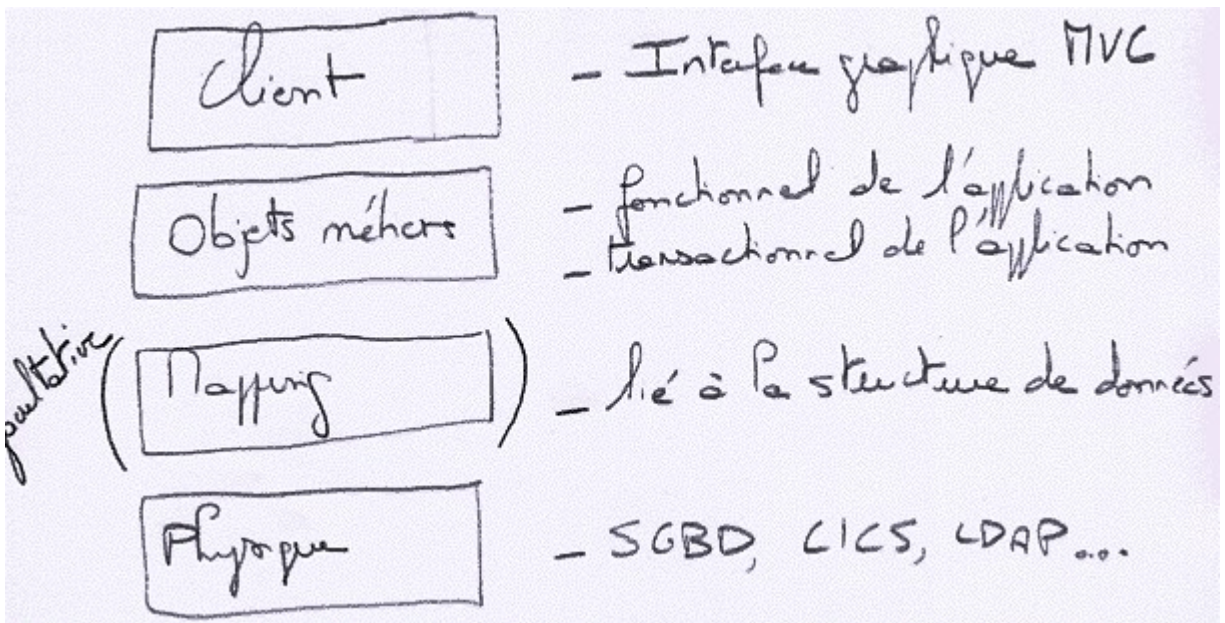 Client
- Interface graphique MVC
Objets métiers
- fonctionnel de l'application
- transactionnel de l'application
facultative
(Mapping)
- lié à la structure de données
Physique
- SGBD, CICS, LDAP...